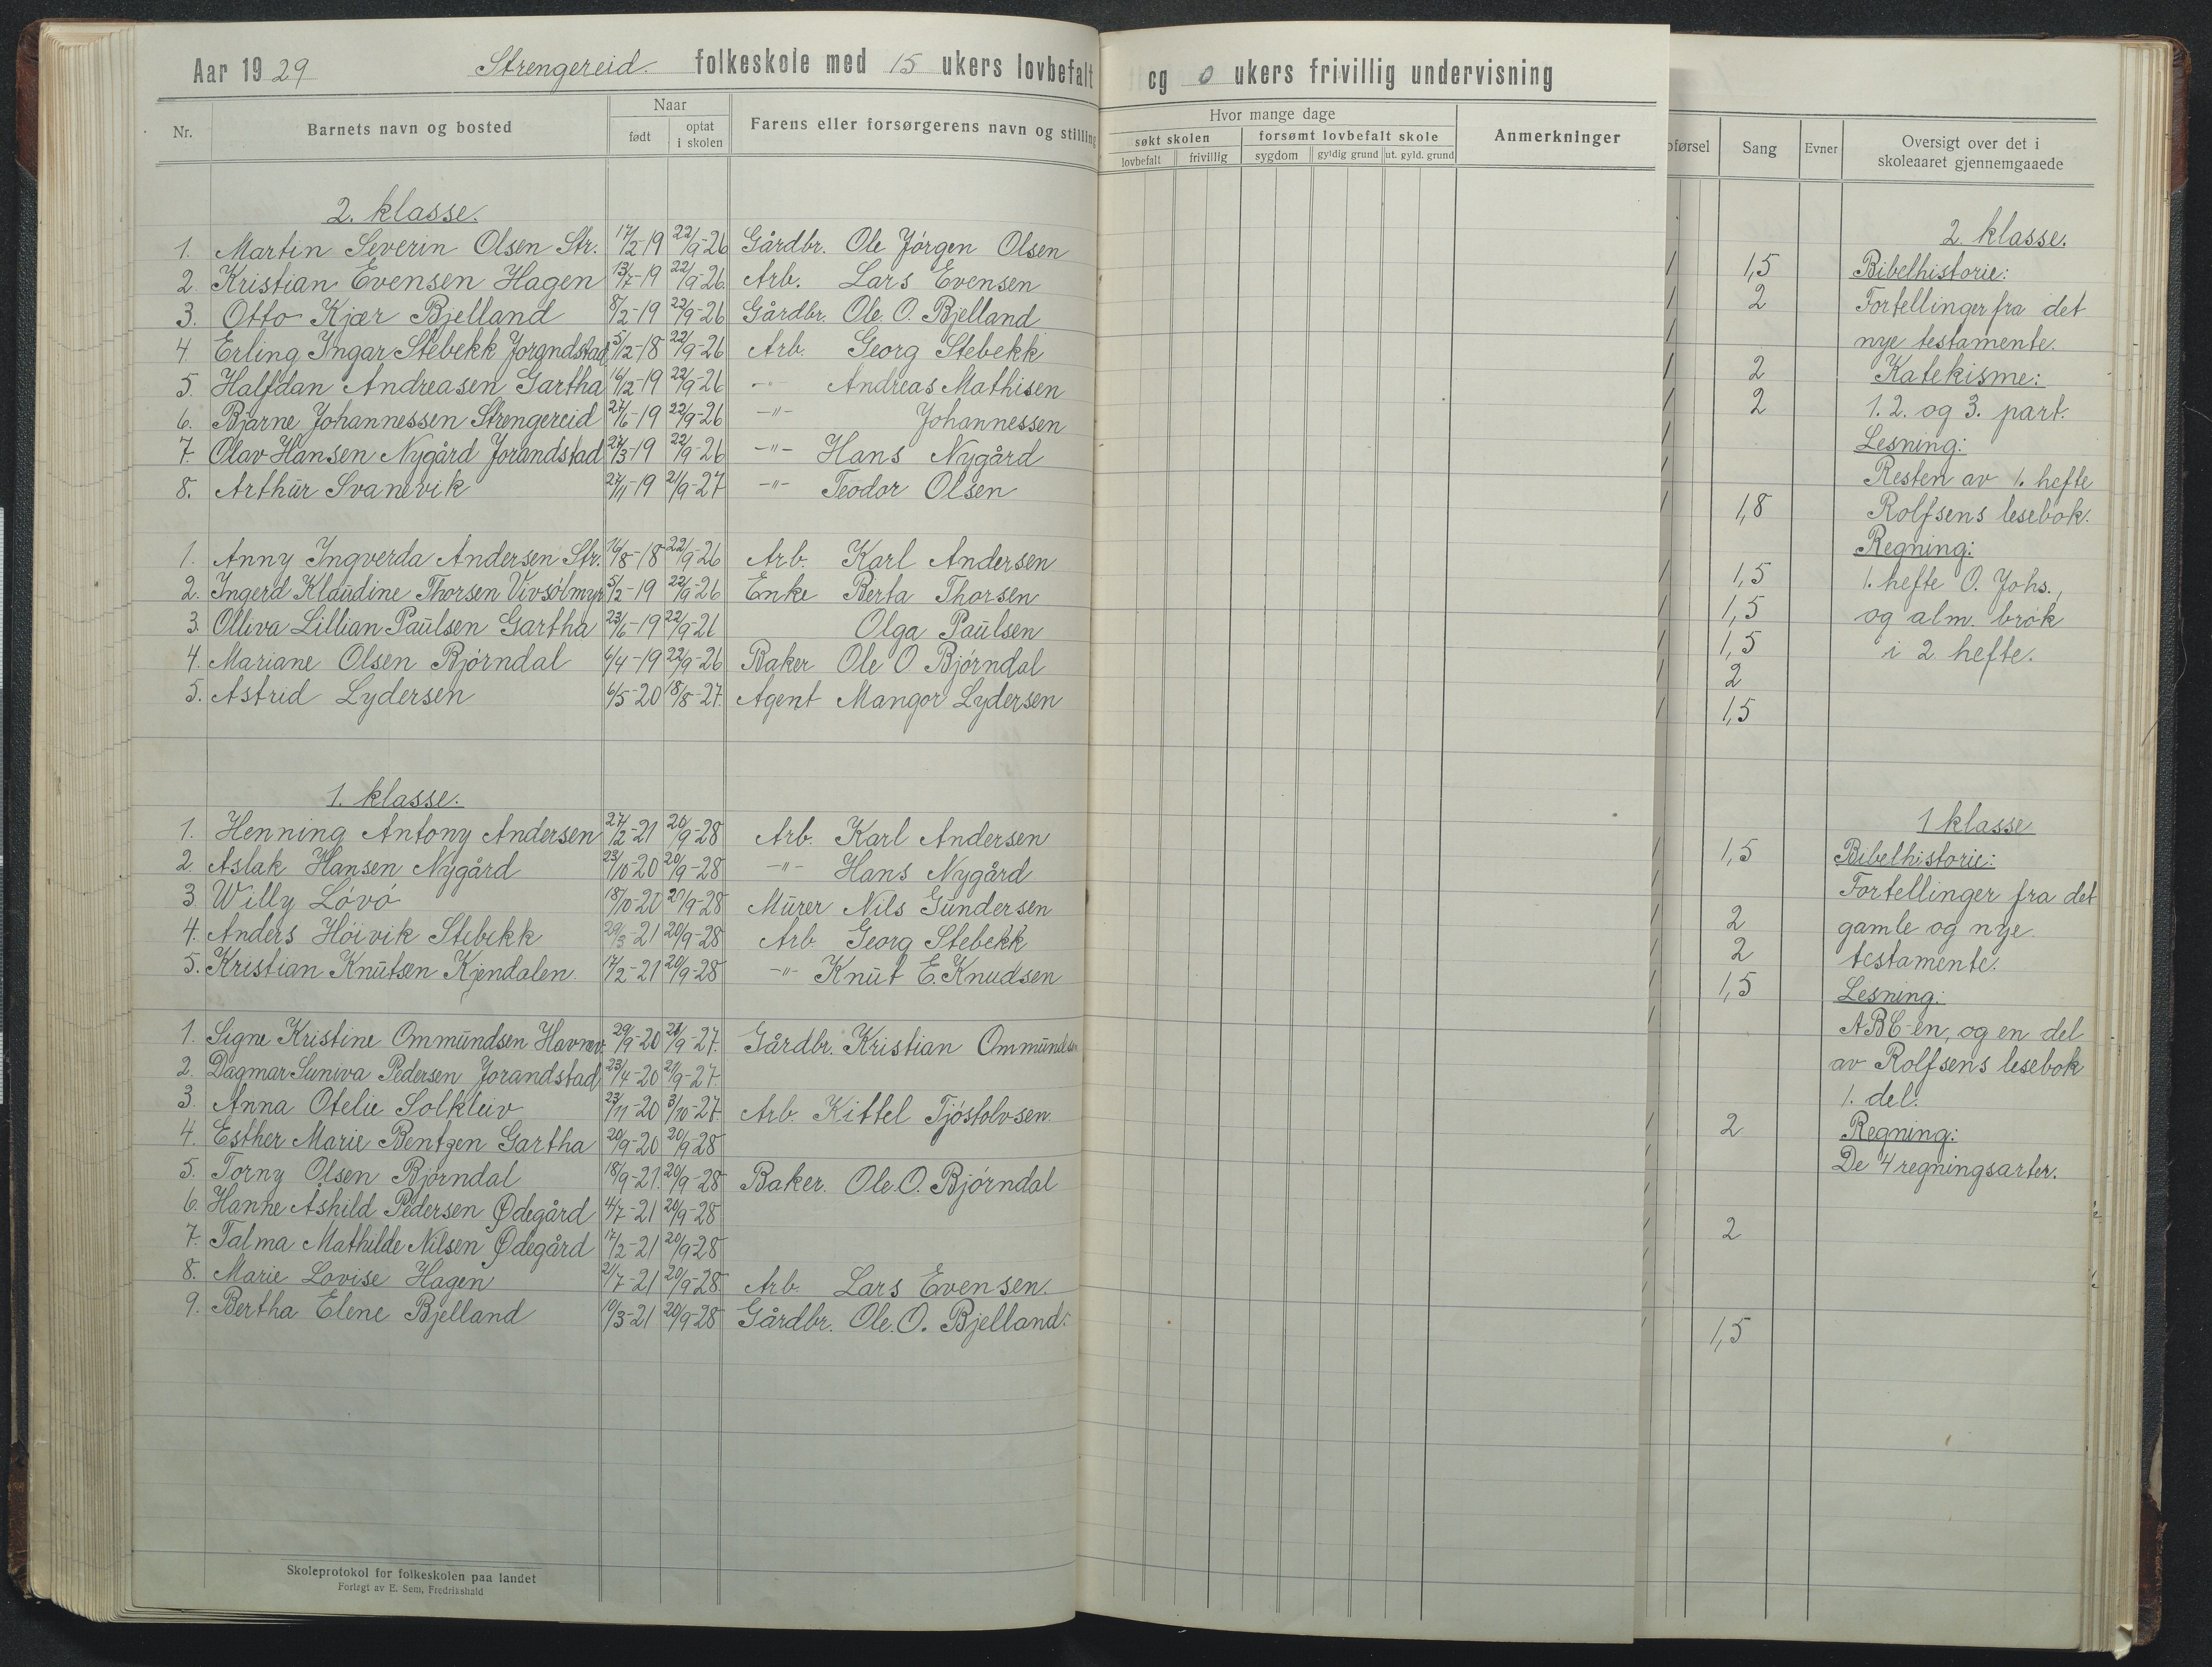 Aar 1929 Strengereid. folkeskole med 15 ukers lovbefalt og 0 ukers frivillig undervisning
Nr. Barnets navn og bosted Naar født optat i skolen Farens eller forsørgerens navn og stilling
2. klasse.
1. Martin Severin Olsen Str. 17/2-19 22/9-26 Gårdbr. Ole Jörgen Olsen
2. Kristian Evensen Hagen 13/7-19 22/9-26 Arb. Lars Evensen
3. Otto Kjær Bjelland 8/2-19 22/9-26 Gårdbr. Ole O. Bjelland
4. Erling Ingar Stebekk Jorandstad 5/12-18 22/9-26 Arb. Georg Stebekk
5. Halfdan Andreasen Gartha 16/12-19 22/9-26 -"- Andreas Mathisen
6. Bjarne Johannessen Strengereid 27/6-19 22/9-26 -"- Johannessen
7. Olav Hansen Nygård Jorandstad 27/3-19 22/9-26 -"- Hans Nygård
8. Arthur Svanevik 27/11-19 21/9-27 -"- Teodor Olsen
1. Anny Ingverda Andersen Str. 16/8-18 22/9-26 Arb. Karl Andersen
2. Ingerd Klaudine Thorsen Vivsölmyr 5/2-19 22/9-26 Enke Berta Thorsen
3. Olliva Lillian Paulsen Gartha 23/6-19 22/9-26 Olga Paulsen
4. Mariane Olsen Bjórndal 6/4-19 22/9-26 Baker Ole O Bjórndal
5. Astrid Lydersen 6/5-20 18/8-27. Agent Mangor Lydersen
1. klasse.
1. Henning Antony Andersen 27/2-21 20/9-28 Arb. Karl Andersen
2. Aslak Hansen Nygård 23/10-20 20/9-28 -"- Hans Nygård
3. Willy Lóvó 18/10-20 20/9-28 Murer Nils Gundersen
4. Anders Hóivik Stebekk 29/3-21 20/9-28 Arb Georg Stebekk
5. Kristian Knutsen Kjendalen. 17/2-21 20/9-28 -"- Knut E. Knudsen
1. Signe Kristine Ommundsen Havnev. 29/9-20 21/9-27. Gårdbr. Kristian Ommundsen
2. Dagmar Suniva Pedersen Jorandstad 23/4-20 21/9-27.
3. Anna Otelie Solkleiv 23/11-20 3/10-27. Arb. Kittel Tjóstolvsen.
4. Esther Marie Bentzen Gartha 20/9-20 20/9-28
5. Torny Olsen Bjórndal 18/9-21. 20/9-28 Baker. Ole. O. Bjórndal
6. Hanne Ashild Pedersen Ødegård 4/7-21 20/9-28
7. Talma Mathilde Nilsen Ødegård 17/2-21 20/9-28
8. Marie Lovise Hagen 21/7-21 20/9-28. Arb. Lars Evensen.
9. Bertha Elene Bjelland 10/3-21 20/9-28 Gårdbr. Ole. O. Bjelland.
Skoleprotokol for folkeskolen paa landet
Forlagt av E. Sem, Fredrikshald
Hvor mange dage
søkt skolen forsømt lovbefalt skole Anmerkninger
lovbefalt frivillig sygdom gyldig grund ut. gyld. grund
førsel Sang Evner Oversigt over det i
skoleaaret gjennemgaaede
2. klasse.
1,5 Bibelhistorie:
2 Fortellinger fra det
nye testamente.
2 Katekisme:
2 1. 2. og 3. part.
Lesning:
Resten av 1. hefte
1,8 Rolfsens lesebok.
Regning:
1,5 1. hefte O. Johs.,
1,5 og alm. brok
1,5 i 2 hefte.
2
1,5
1 klasse
1,5 Bibelhistorie:
Fortellinger fra det
2 gamle og nye
2 testamente.
1,5 Lesning:
ABC-en, og en del
av Rolfsens lesebok
1. del.
2 Regning:
De 4 regningsarter.
2
1,5